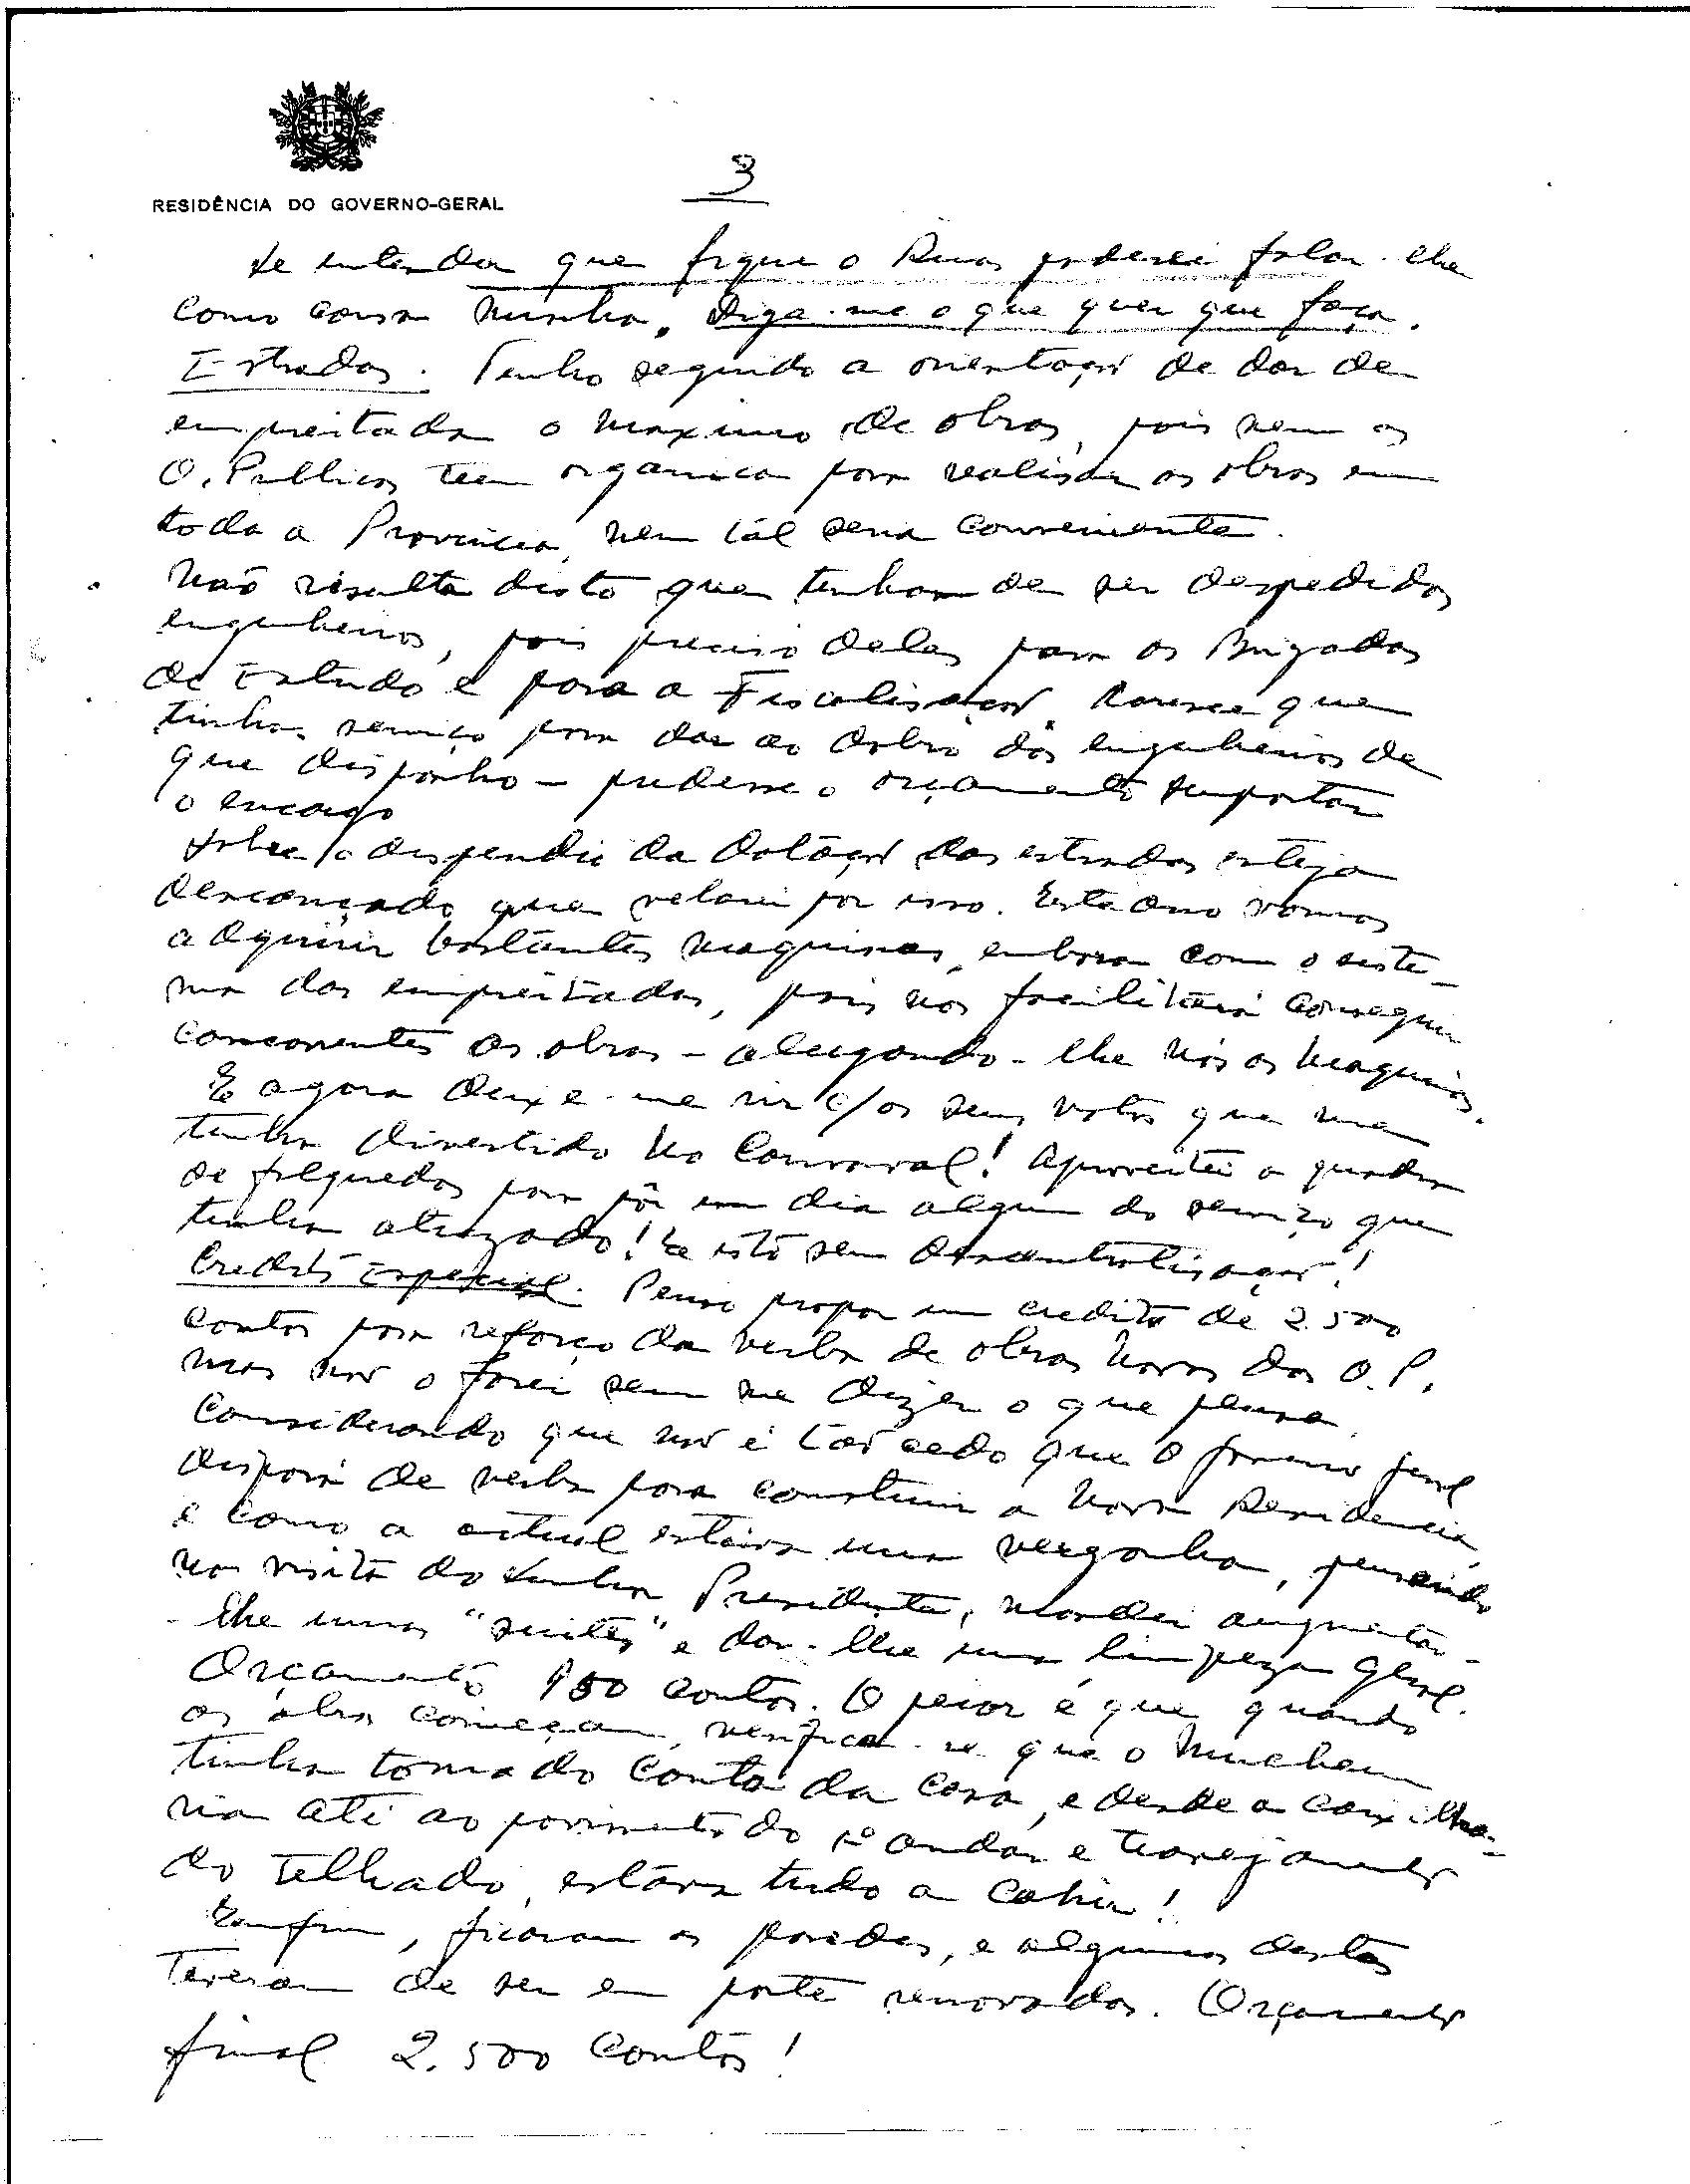 RESIDÊNCIA DO GOVERNO-GERAL
3
Se entender que fique o Ruas poderei falar-lhe
como cousa minha. Diga-me o que quer que faça.
Estradas. Tenho seguido a orientação de dar de
empreitada o maximo de obras, pois nem as
O. Publicas teem organica para realisar as obras em
toda a Provincia, nem tál seria conveniente.
Não resulta disto que tenham de ser despedidos
engenheiros, pois preciso deles para as Brigadas
de Estudo e para a Fiscalisação. Parece que
tinha serviço para dar ao dobro dos engenheiros de
que disponho - pudesse o orçamento suportar
o encargo
Sobre o dispendio da dotação das estradas esteja
descançado que velarei por isso. Este ano vamos
adquirir bastantes maquinas, embora com o siste-
ma das empreitadas, pois nos facilitará conseguir
concorrentes às obras - alugando-lhe nós as maquinas.
E agora deixe-me rir c/ os seus votos que me
tenha divertido no Carnaval! Aproveitei a quadra
de folguedos para pôr em dia algum do serviço que
tinha atrazado! E isto sem descentralisação!
Credito Especial. Penso propor um credito de 2.500
contos para reforço da verba de obras novas das O.P.
mas não o farei sem me dizer o que pensa.
Considerando que não é tão cedo que o Governo Geral
disporá de verba para construir a nova Residencia,
e como a actual estava uma vergonha, pensando
na visita do Senhor Presidente, mandei aumentar-
-lhe umas "suites" e dar-lhe uma limpeza geral.
Orçamento 950 contos. O peior é que quando
as obras começam, verifica-se que o muchem
tinha tomado conta da casa, e desde a caixilha-
ria até ao pavimento do 1º andar e travejamento
do telhado, estava tudo a cahir!
Emfim, ficaram as paredes, e algumas destas
tiveram de ser em parte renovadas. Orçamento
final 2.500 contos!